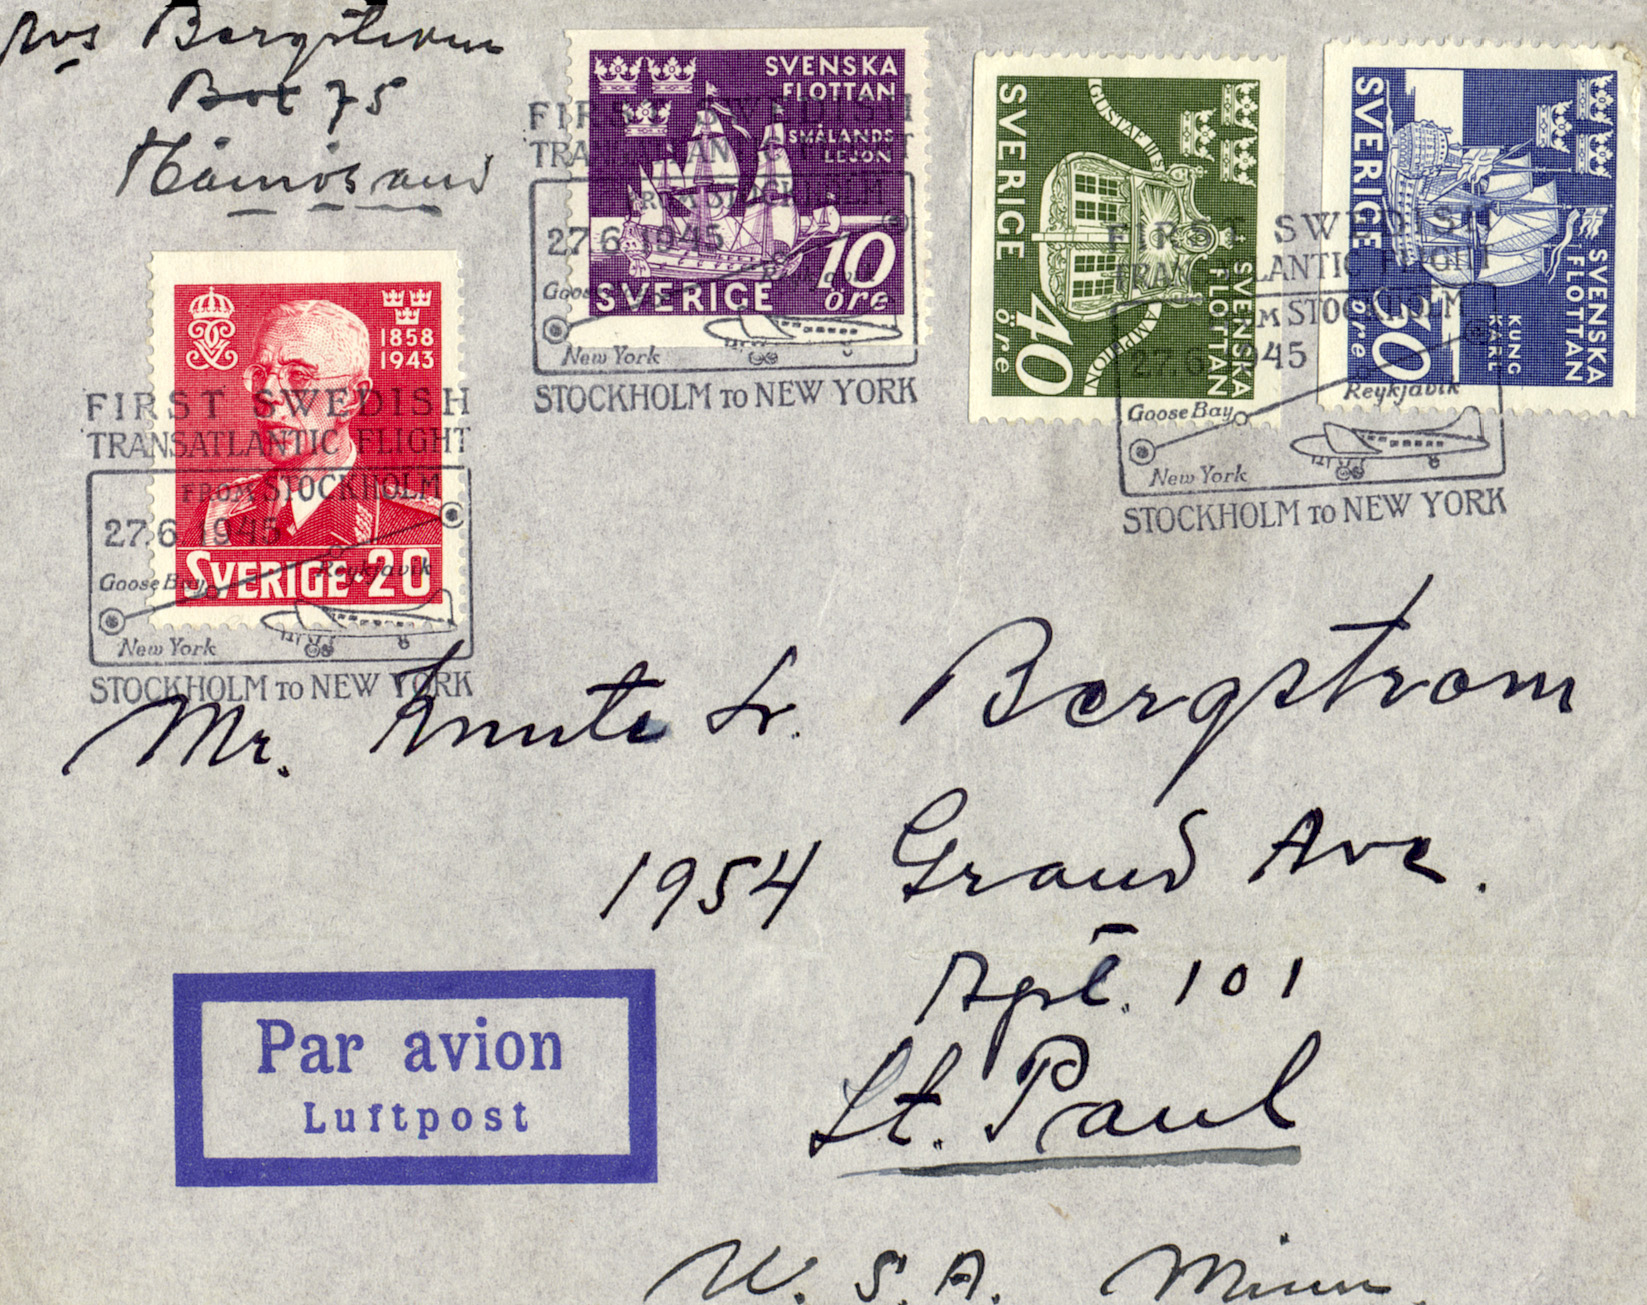 Bergstrom
Box 75
Härnösand
SVENSKA
FLOTTAN
SMÅLANDS
LEJON
10
öre
SVERIGE
FIRST SWEDISH
TRANSATLANTIC FLIGHT
FROM STOCKHOLM
27.6.1945
Reykjavik
Goose
New York
STOCKHOLM TO NEW YORK
SVERIGE
GUSTAF III:S
AMPHION
SVENSKA
FLOTTAN
40
öre
SVERIGE
SVENSKA
FLOTTAN
KUNG
KARL
60
öre
FIRST SWEDISH
TRANSATLANTIC FLIGHT
FROM STOCKHOLM
27.6.1945
Reykjavik
Goose Bay
New York
STOCKHOLM TO NEW YORK
1858
1943
SVERIGE 20
FIRST SWEDISH
TRANSATLANTIC FLIGHT
FROM STOCKHOLM
27.6.1945
Reykjavik
Goose Bay
New York
STOCKHOLM TO NEW YORK
Mr. Knute Sr. Bergstrom
1954 Grand Ave.
Apt. 101
St. Paul
U.S.A. Minn.
Par avion
Luftpost